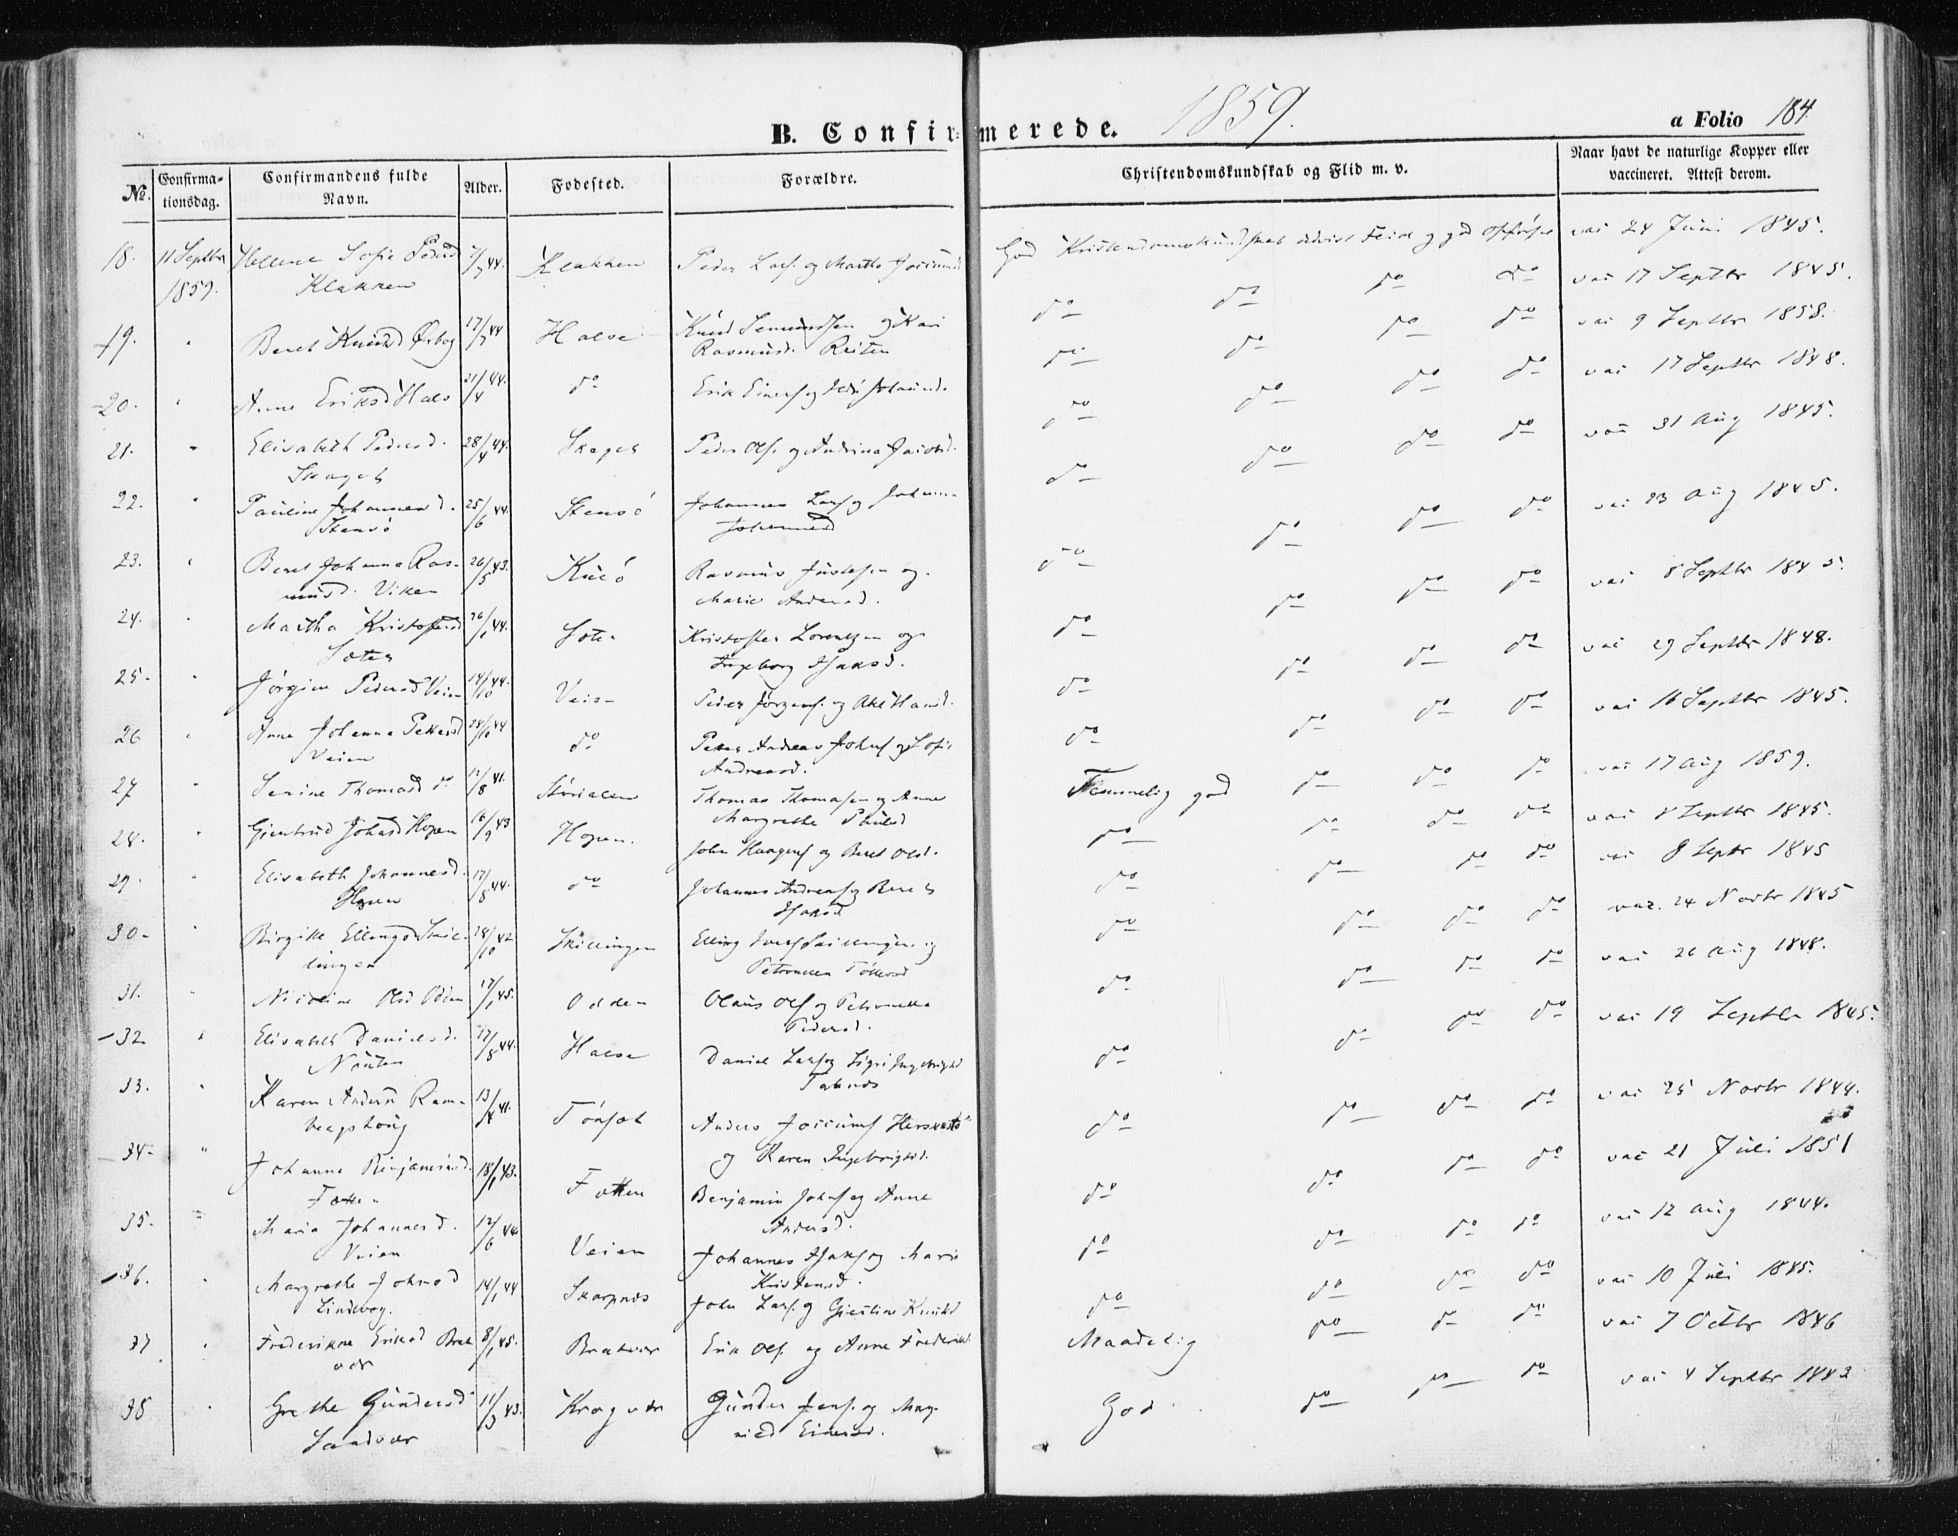 1859.
B. Confirmerede.
a Folio 184.
No. Confirmationsdag. Confirmandens fulde Navn. Alder. Fødested. Forældre. Christendomskundskab og Flid m. v. Naar havt de naturlige Kopper eller vaccineret. Attest derom.
18. 11 Septbr 1859. Hellene Sofie Klakken 7/7 44. Klakken Peder Lars. og Martha God Kristendomskundskab udvist Flid og god Opførsel vac 24 Juni 1845.
19. " Beret Knudsd 17/7 44 Halse Knud og Kari Rasmusd. Reiten do do do do vac 17 Septbr 1845.
20. " Anne Eriksd Hals 21/4 44. do Erik Einers og do do do do vac 9 Septbr 1858.
21. " Elisabeth Pedersd. Skaget 28/4 44. Skaget Peder Ols. og Andrina Jacobsd. do do do do vac 17 Septbr 1848.
22. " Pauline Johannesd. Stensö 25/6 44. Stensö Johannes Lars og Johannesd do do do do vac 31 Aug 1845.
23. " Beret Johanna Rasmusd. Viken 26/5 43. Kueö Rasmus og Marie Andersd. do do do do vac 23 Aug 1845.
24. " Martha Kristofersd 26/1 44. Kristoffer Lorentzen og Ingeborg Isaksd. do do do do vac 8 Septbr 1845.
25. " Jörgine Pedersd Veien 14/10 44. Veien Peder Jörgens. og do do do do vac 29 Septbr 1848.
26 " Anne Johanna Pettersd Veien 28/10 44 do Petter Andreas Johns og Sofie Andreasd. do do do do vac 16 Septbr 1845.
27 " Serine Thomasd do 12/8 41. Thomas Thomasen og Anne Margrethe Paulsd Temmelig god do do do vac 17 Aug 1859.
28. " Gjertrud Johnsd Hopen 16/9 43 Hopen. John Haagens og Beret Olsd. do do do do vac 8 Septbr 1845.
29 " Elisabeth Johannesd. Hopen 17/8 44. do Johannes Andreas og Beret Isaksd do do do do vac 8 Septr 1845
30. " Birgitte Ellingsd Skillingen 28/10 42 Skillingen Elling og Petronella do do do do vac. 24 Novbr 1845
31. " Nicoline Olsd Odden 17/1 45. Odden Olaus Ols og Petronella Pedersd. do do do do vac 26 Aug 1848.
32 " Elisabeth Danielsd. 12/8 44. Halse Daniel Lars og do do do do vac 19 Septbr 1845.
33. " Karen Andersd 13/4 41. Anders og Karen Ingebrigtsd. do do do do vac 25 Novbr 1844.
34 " Johanne Benjaminsd. Fætten 18/1 43. Fætten Benjamin Johns og Anne Andersd. do do do do vac 21 Juli 1851
35. " Maria Johannesd. Veien 12/6 44 Veien Johannes Isaks og Marie Kristensd. do do do do vac 12 Aug 1844.
36. " Margrethe Johnsd Lindvaag. 14/1 44 Skarpnæs John Lars. og Gjertine Knudsd do do do do vac 10 Juli 1845.
37 " Frederikke Eriksd Bratvær 8/1 45. Bratvær Erik Ols. og Anne Frederiksd Maadelig do do do vac 7 Octbr 1846
38 " Grethe Gundersd Sandvær 11/3 43. Kragvær Gunder Jens. og Magnild Einersd. God do do do vac 4 Septbr 1843